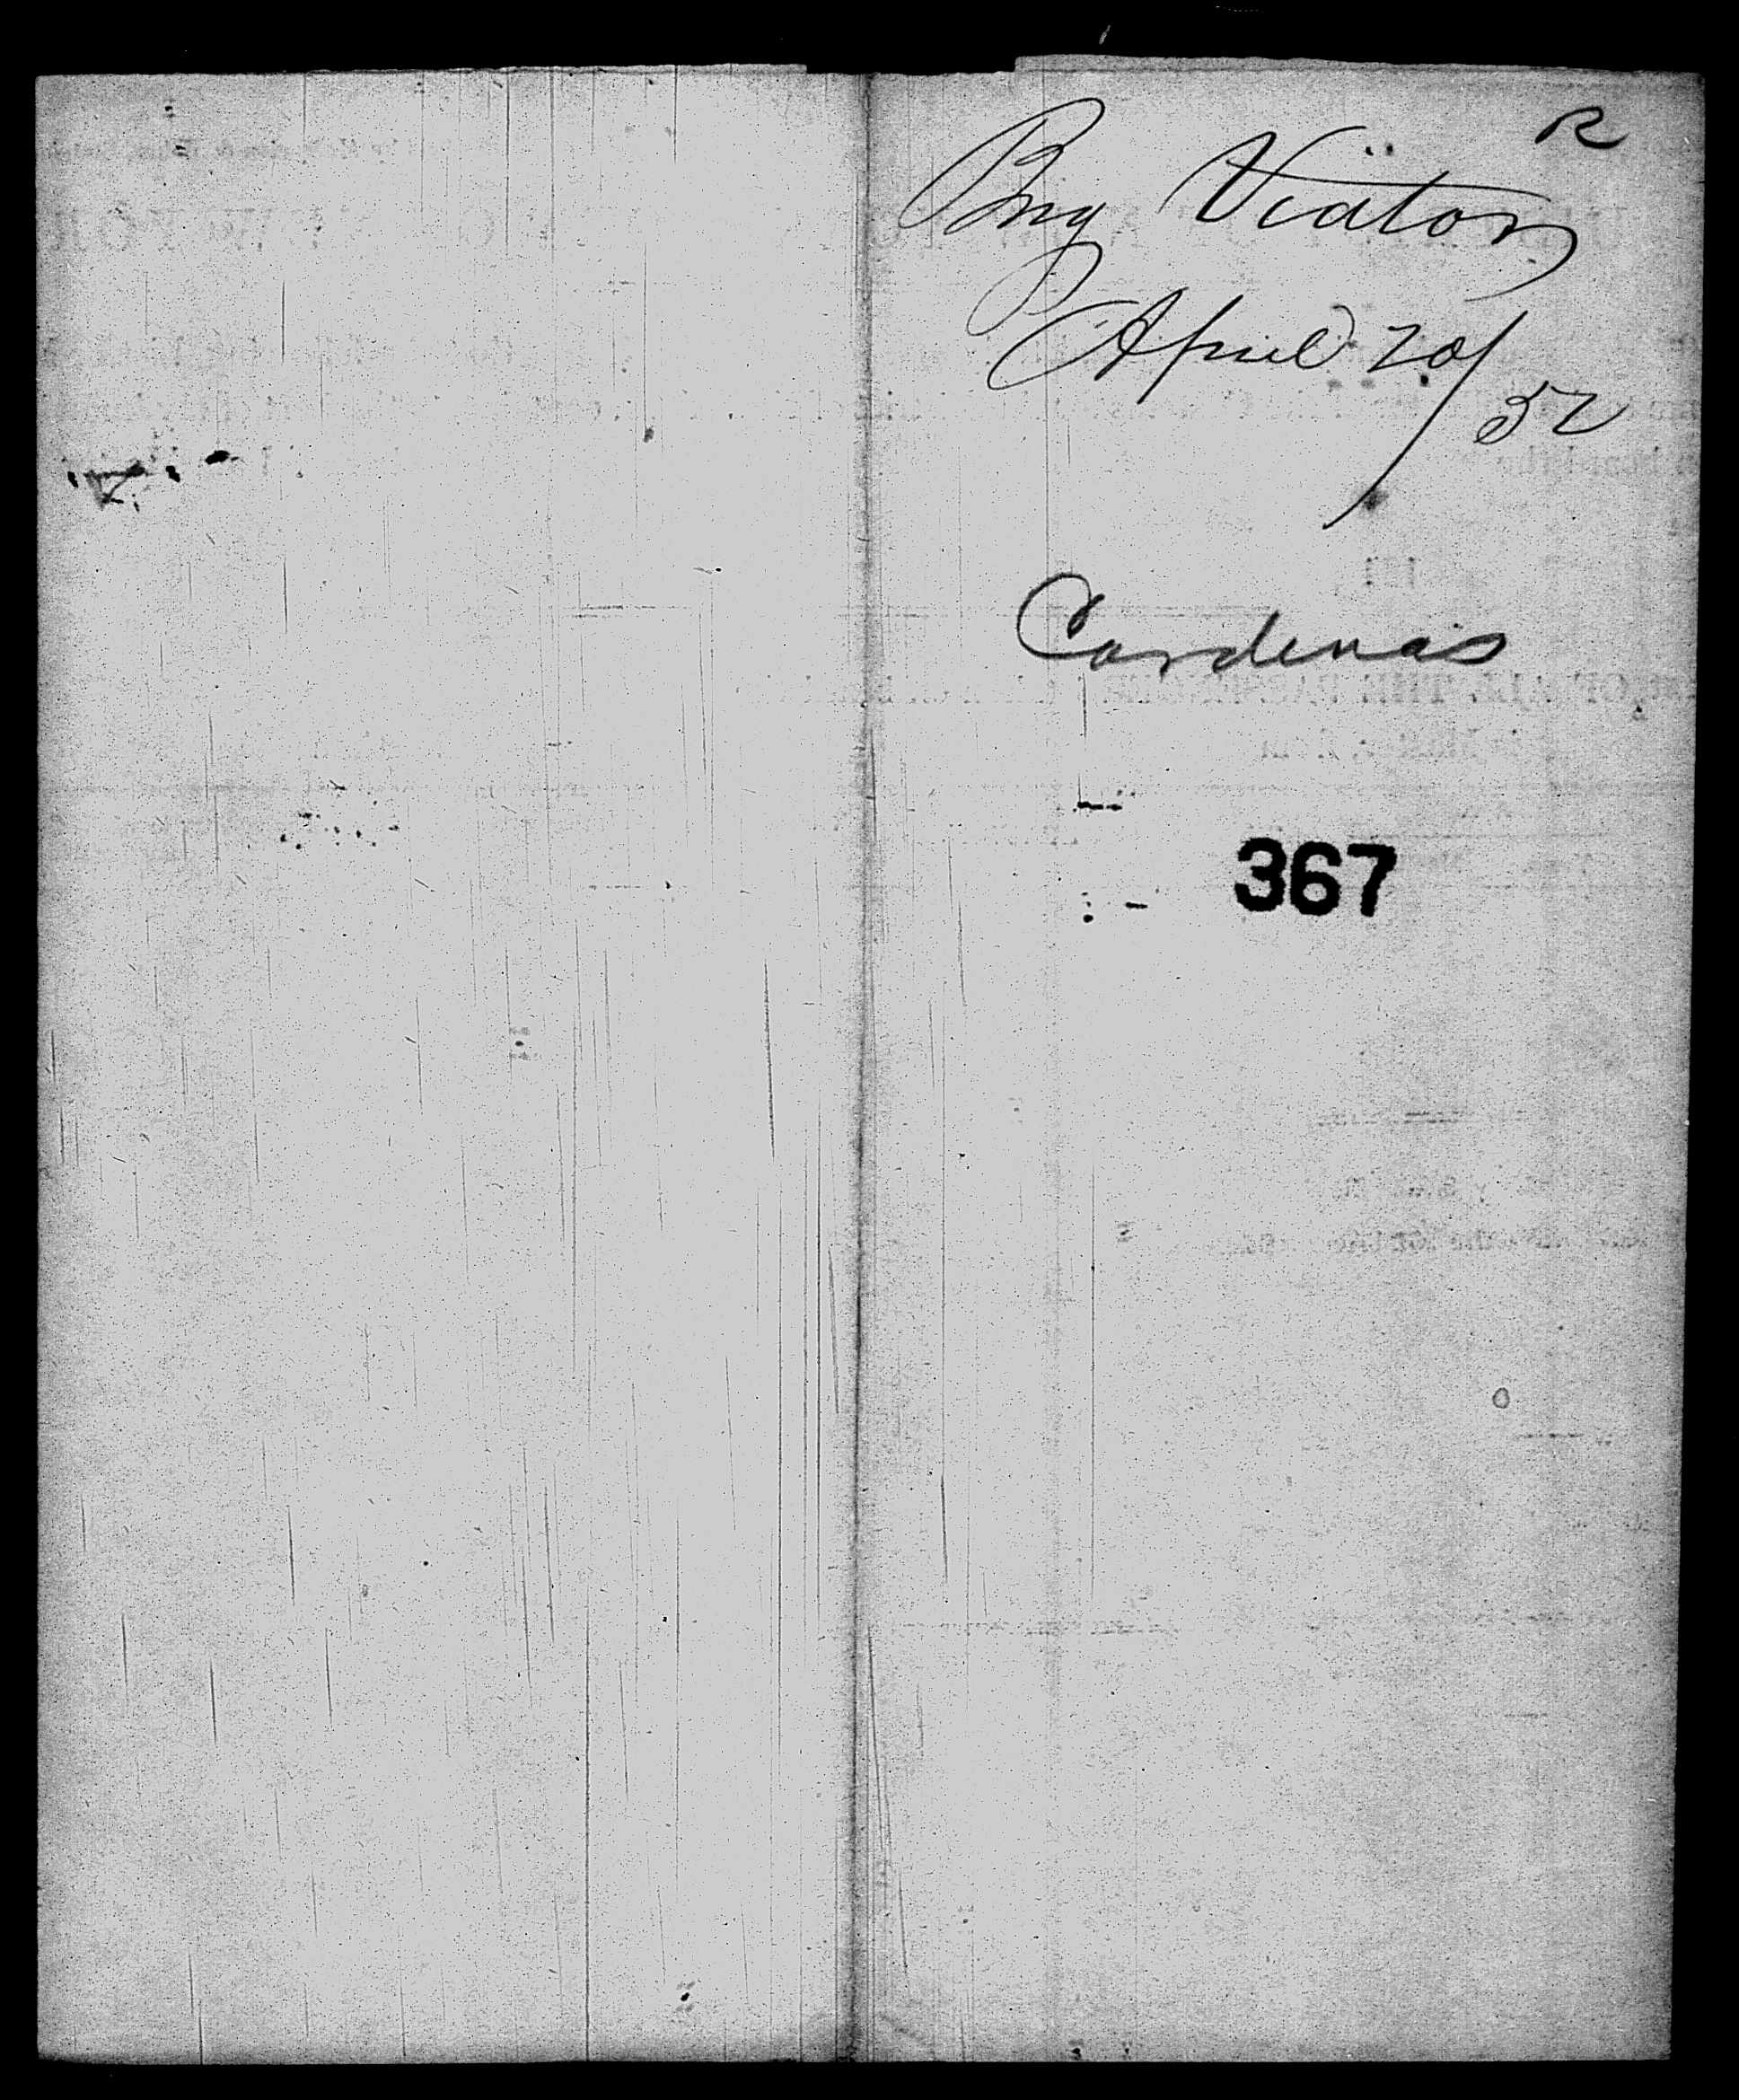 R
Brig Viator
April 20/
52
Cardenas
367